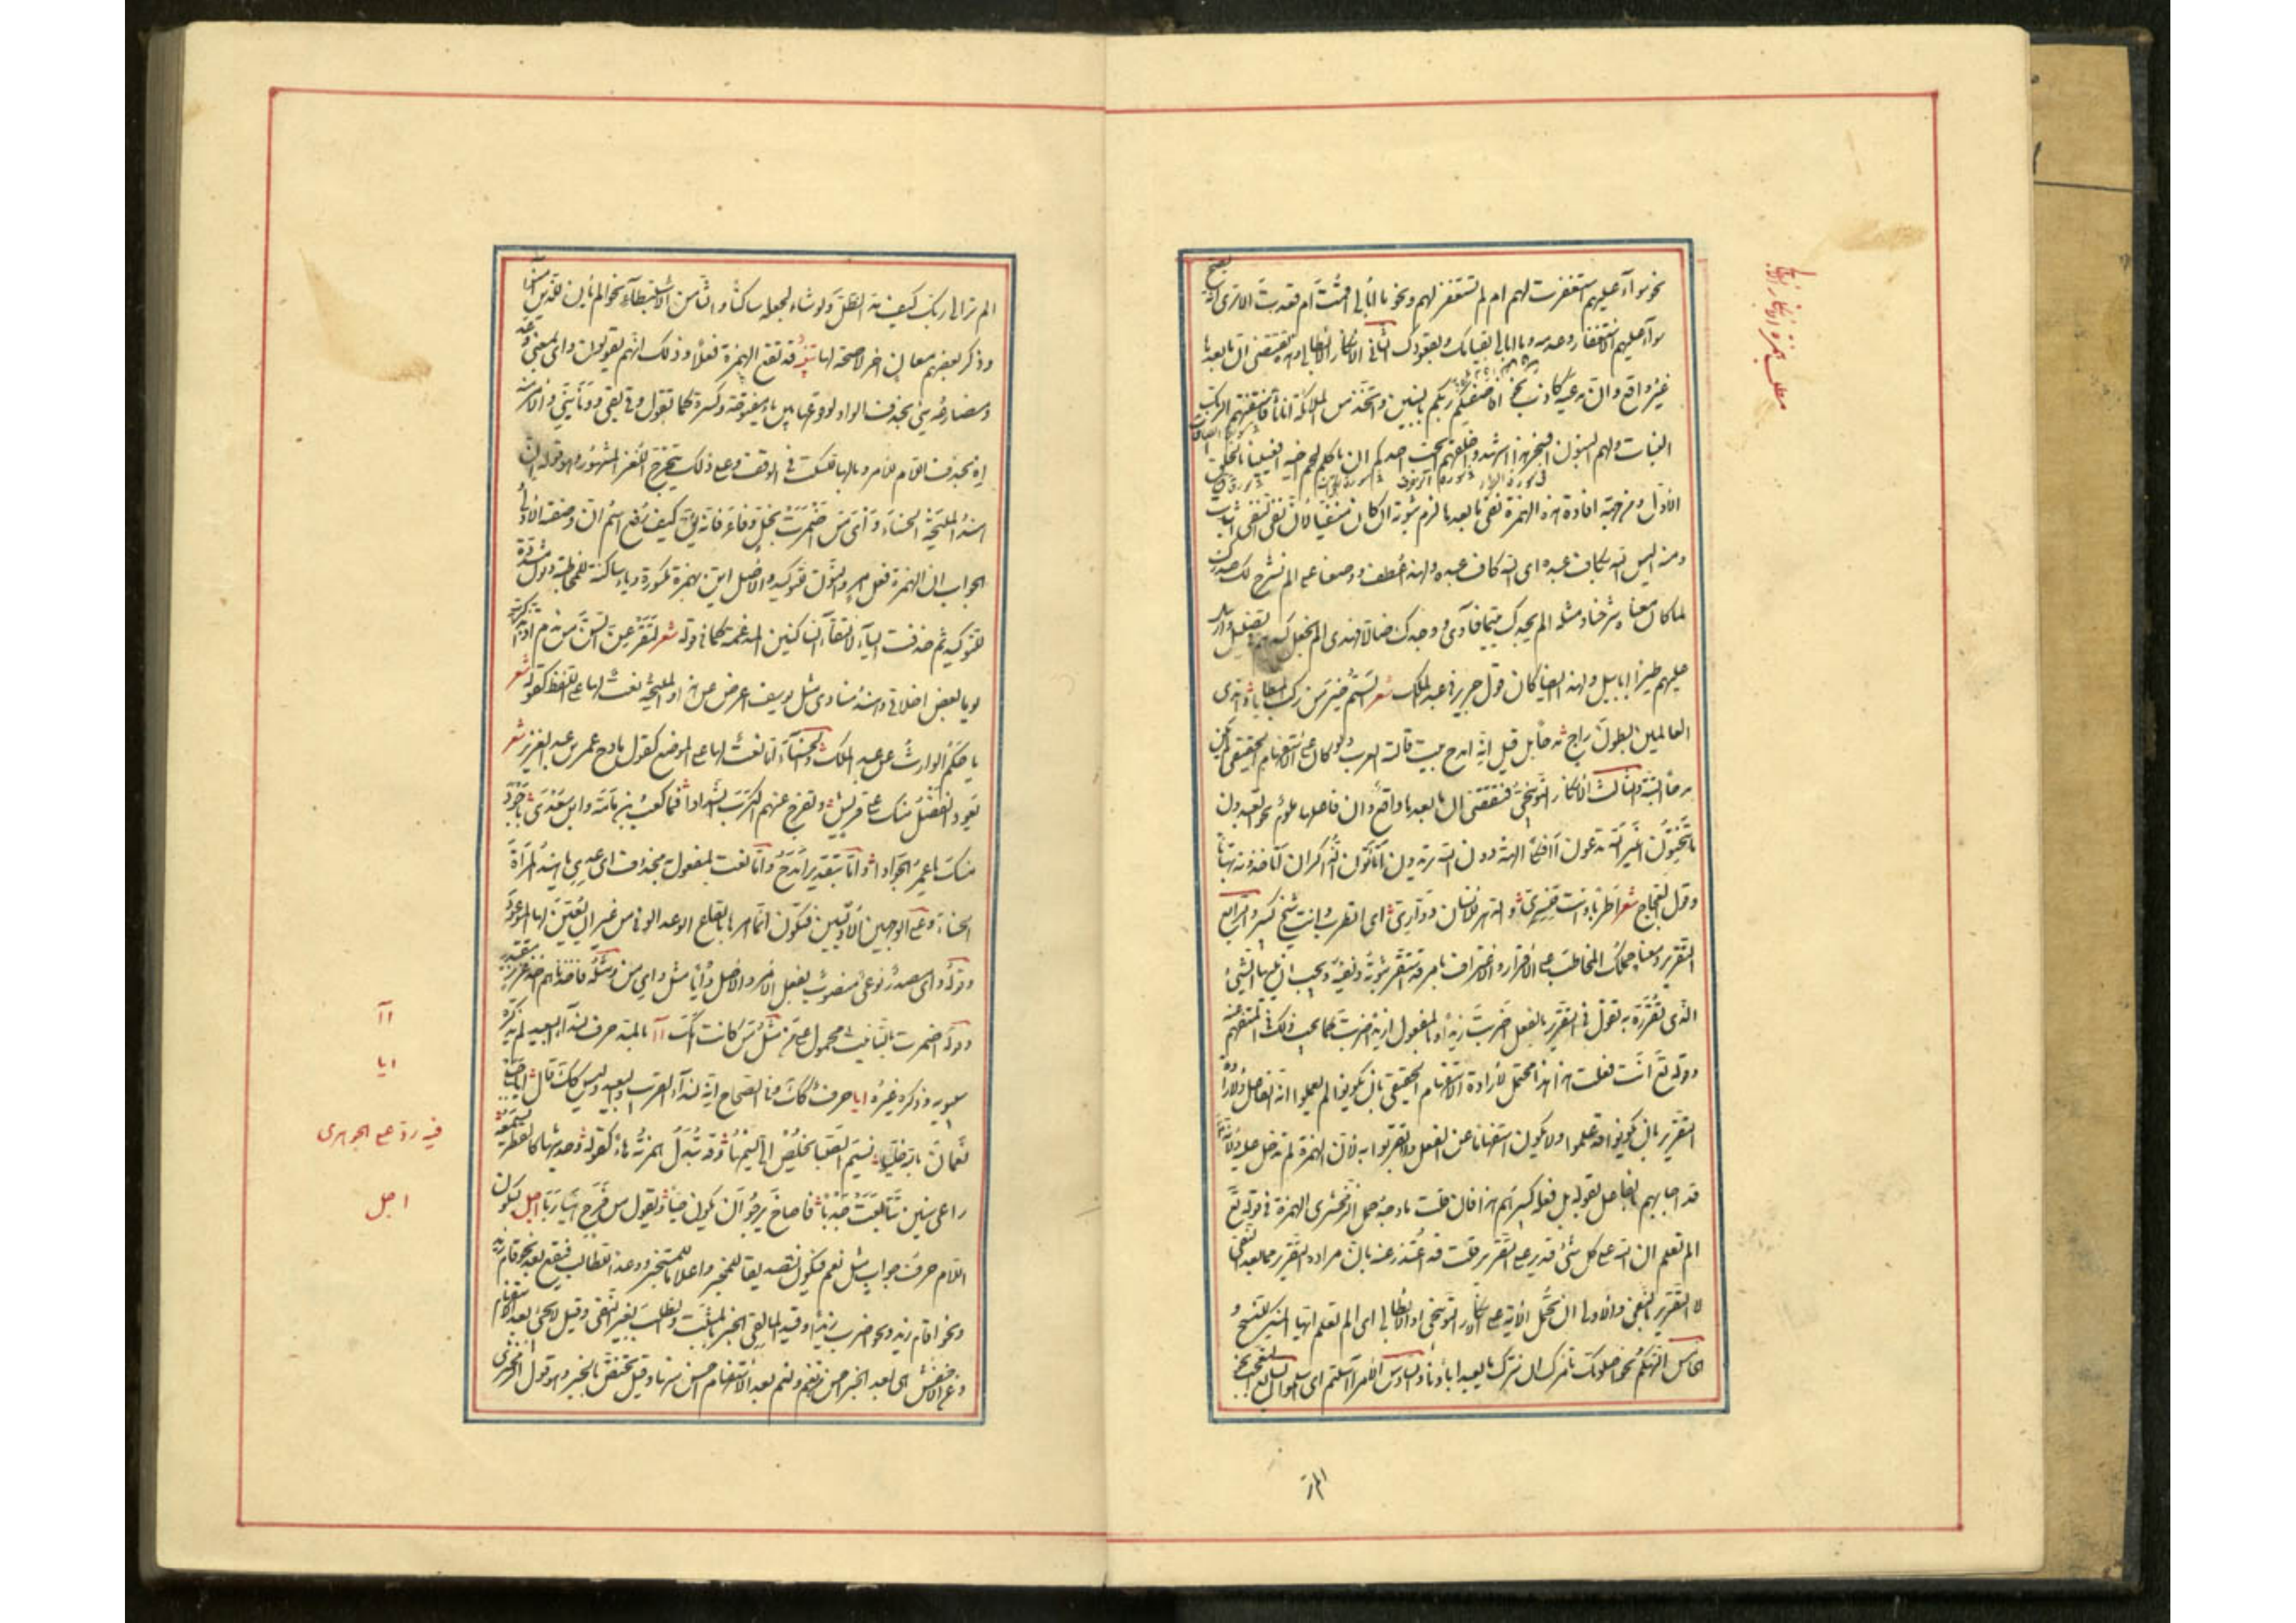 نحو سوآء عليهم استغفرت لهم ام لم تستغفر لهم ونحو ما ابالى اقمت ام قعدت الا ترى انه يصح
سوآء عليهم الاستغفار وعدمه وما ابالى بقيامك وبقعودك الثانى الانكار الابطالى وهذه تقتضى ان ما بعدها
غير واقع وان مدعيه كاذب نحو افاصفيكم ربكم بالبنين واتخذ من الملائكة اناثا فاستفتهم الربك
البنات ولهم البنون افسحر هذا اشهدوا خلقهم ايحب احدكم ان ياكل لحم اخيه افعيينا بالخلق
الاول ومن جهة افادة هذه الهمزة نفى ما بعدها لزم ثبوته ان كان منفيا لان نفى النفى اثبات
ومنه اليس الله بكاف عبده اى الله كاف عبده ولهذا عطف ووضعنا على الم نشرح لك صدرك
لما كان معناه شرحنا ومثله الم يجدك يتيما فآوى ووجدك ضالا فهدى الم يجعل كيدهم فى تضليل وارسل
عليهم طيرا ابابيل ولهذا ايضا كان قول جرير فى عبد الملك شعر الستم خير من ركب المطايا واندى
العالمين بطون راح مدحا بل قيل انه امدح بيت قالته العرب ولو كان على الاستفهام الحقيقى لم يكن
مدحا البتة والثالث الانكار التوبيخى فتقتضى ان ما بعدها واقع وان فاعلها ملوم نحو اتعبدون
ما تنحتون اغير الله تدعون أافكا الهة دون الله تريدون اتاتون الذكران اتاخذونه بهتانا
وقول العجاج شعر اطربا وانت قنسرى والدهر بالانسان دوارى اى اتطرب وانت شيخ كبير والرابع
التقرير ومعناه حملك المخاطب على الاقرار والاعتراف بامر قد استقر ثبوته او نفيه ويجب ان يليها الشئ
الذى تقرره به تقول فى التقرير بالفعل اضربت زيدا وبالمفعول ازيدا ضربت كما يجب ذلك فى المستفهم عنه
وقوله تع أانت فعلت هذا محتمل لارادة الاستفهام الحقيقى بان يكونوا لم يعلموا انه الفاعل ولارادة
التقرير بان يكونوا قد علموا ولا يكون استفهاما عن الفعل ولا تقريرا به لان الهمزة لم تدخل عليه ولانه
قد اجابهم بالفاعل بقوله بل فعله كبيرهم هذا فان قلت ما وجه حمل الزمخشرى الهمزة فى قوله تع
الم تعلم ان الله على كل شئ قدير على التقرير قلت قد اعتذر عنه بان مراده التقرير بما بعد النفى
لا التقرير بالنفى والاولى ان تحمل الآية على الانكار التوبيخى او الابطالى اى الم تعلم ايها المنكر للنسخ و
الخامس التهكم نحو اصلوتك تامرك ان نترك ما يعبد اباؤنا والسادس الامر أاسلمتم اى اسلموا السابع التعجب نحو
الم تر
الم تر الى ربك كيف مد الظل ولو شاء لجعله ساكنا والثامن الاستبطاء نحو الم يان للذين آمنوا
وذكر بعضهم معان اخر لا صحة لها تنبيه قد تقع الهمزة فعلا وذلك انهم يقولون واى بمعنى وعد
ومضارعه يئى بحذف الواو لوقوعها بين ياء مفتوحة وكسرة كما تقول وفى يفى وونى ينى والامر منه
اه بحذف اللام للامر وبالهاء للسكت فى الوقف وعلى ذلك يتخرج اللغز المشهور وهو قوله ان
هند المليحة الحسناء وأى من اضمرت بخل وفاء فانه يق كيف رفع اسم ان وصفته الاولى
الجواب ان الهمزة فعل امر والنون توكيد والاصل اين بهمزة مكسورة وياء ساكنة للمخاطبة ونون مشددة
للتوكيد ثم حذفت الياء لالتقاء الساكنين المدغمة كما فى قوله شعر لتقرعن السن من ندم اذا تذكرت
يوما بعض اخلاقى وهند منادى مثل يوسف اعرض عن هذا والمليحة نعت لها على اللفظ كقوله شعر
يا حكم الوارث عن عبد الملك والحسناء اما نعت لها على الموضع كقول مادح عمر بن عبد العزيز شعر
يعود الفضل منك على قريش وتفرج عنهم الكرب الشدادا فما كعب بن مامة وابن سعدى باجود
منك يا عمر الجوادا واما بتقدير امدح واما نعت لمفعول محذوف اى عدى يا هند المرأة
الحسناء وعلى الوجهين الاولين فتكون انما امرها بايقاع الوعد الوفى من غير ان يعين لها الموعود
وقوله واى مصدر نوعى منصوب بفعل الامر والاصل وأيا مثل واى من ومثله فاخذناهم اخذ عزيز مقتدر
وقوله اضمرت بالتانيث محمول على معنى من مثل من كانت امك آآ بالمد حرف لنداء البعيد لم يذكره
سيبويه وذكره غيره ايا حرف كك وفى الصحاح انه لنداء القريب والبعيد وليس كك قال ايا جبلى
نعمان بالله خليا نسيم الصبا يخلص الى نسيمها وقد تبدل همزته هاء كقوله وحديثها كالقطر يسمعه
راعى سنين تتابعت جدبا فاصاخ يرجو ان يكون حيا ويقول من فرح هيا ربا اجل بسكون
اللام حرف جواب مثل نعم فيكون تصديقا للمخبر واعلاما للمستخبر ووعدا للطالب فيقع بعد نحو قام زيد
ونحو اقام زيد ونحو اضرب زيدا وقيد المالقى الخبر بالمثبت والطلب بغير النهى وقيل لا تجئ بعد الاستفهام
وعن الاخفش هى بعد الخبر احسن من نعم ونعم بعد الاستفهام احسن منها وقيل تختص بالخبر وهو قول الزمخشرى
آآ
ايا
فيه رد على الجوهرى
اجل